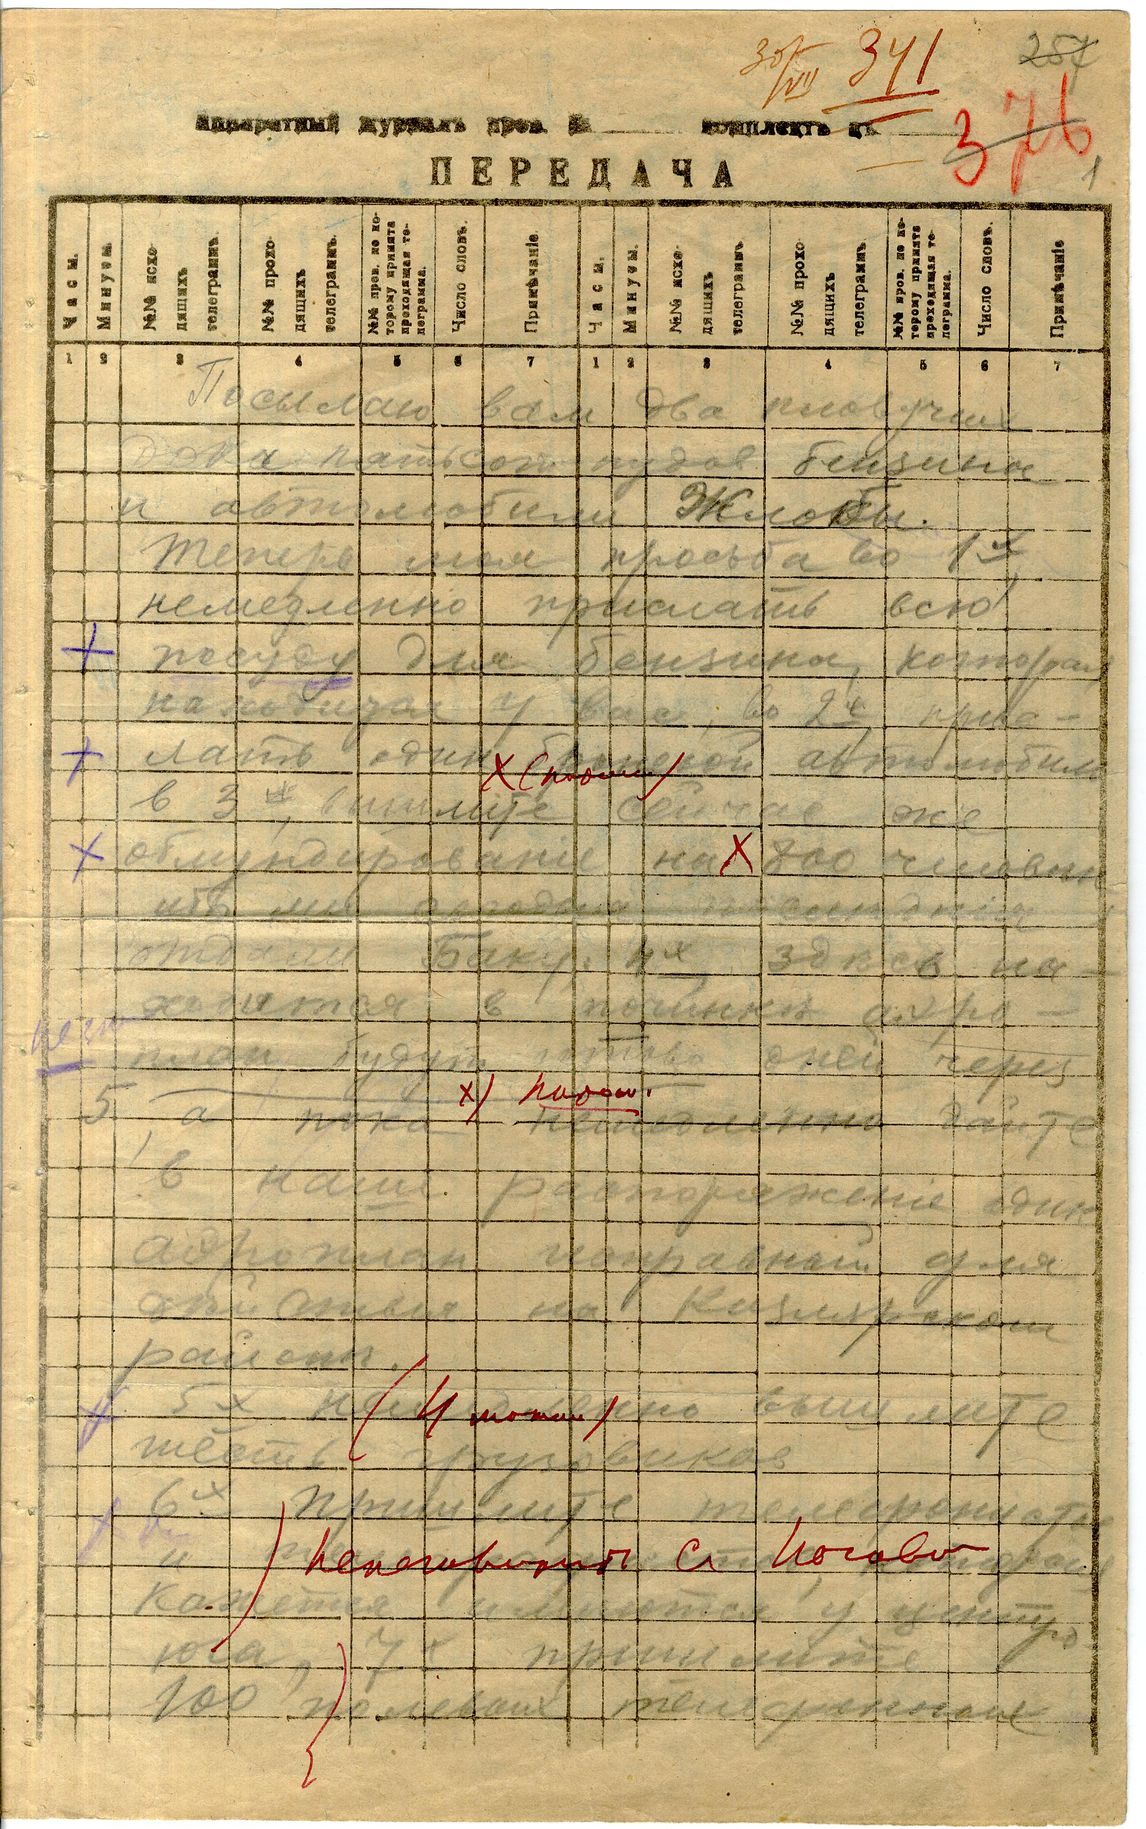 30/VII 341
257
376
1
Аппаратный журналъ пров. № комплектъ
ПЕРЕДАЧА
Часы. Минуты №№ исходящихъ телеграммъ. №№ проходящихъ телеграммъ. №№ пров. по которому принята проходящая телеграмма. Число словъ. Примѣчаніе Часы. Минуты. №№ исходящихъ телеграммъ №№ проходящихъ телеграммъ. №№ пров. по которому принята проходящая телеграмма. Число словъ. Примѣчаніе
1 2 3 4 5 6 7 1 2 3 4 5 6 7
Посылаю вам два пловучих
дока пятьсот пудов бензина
и автомобили Жлобы.
Теперь моя просьба во 1х,
немедленно прислать всю
посуду для бензина, которая
находится у вас, во 2х, прис-
лать один броневой автомобиль
в 3х, вышлите сейчас же
обмундирование на 800 человек
ибо мы последния
отдали Баку. 4х, здесь на-
ходится в починке аэро-
план будут готово дней через
5, а пока немедленно дайте
х) подом.
в наше распоряжение один
аэроплан исправный для
действия на Кизлярском
районе.
5х немедленно вышлите
шесть грузовиков
6х пришлите телефонистов
и
Переговорить с
кажется имеются у центро
юга, 7х пришлите
100 полевых телефонов